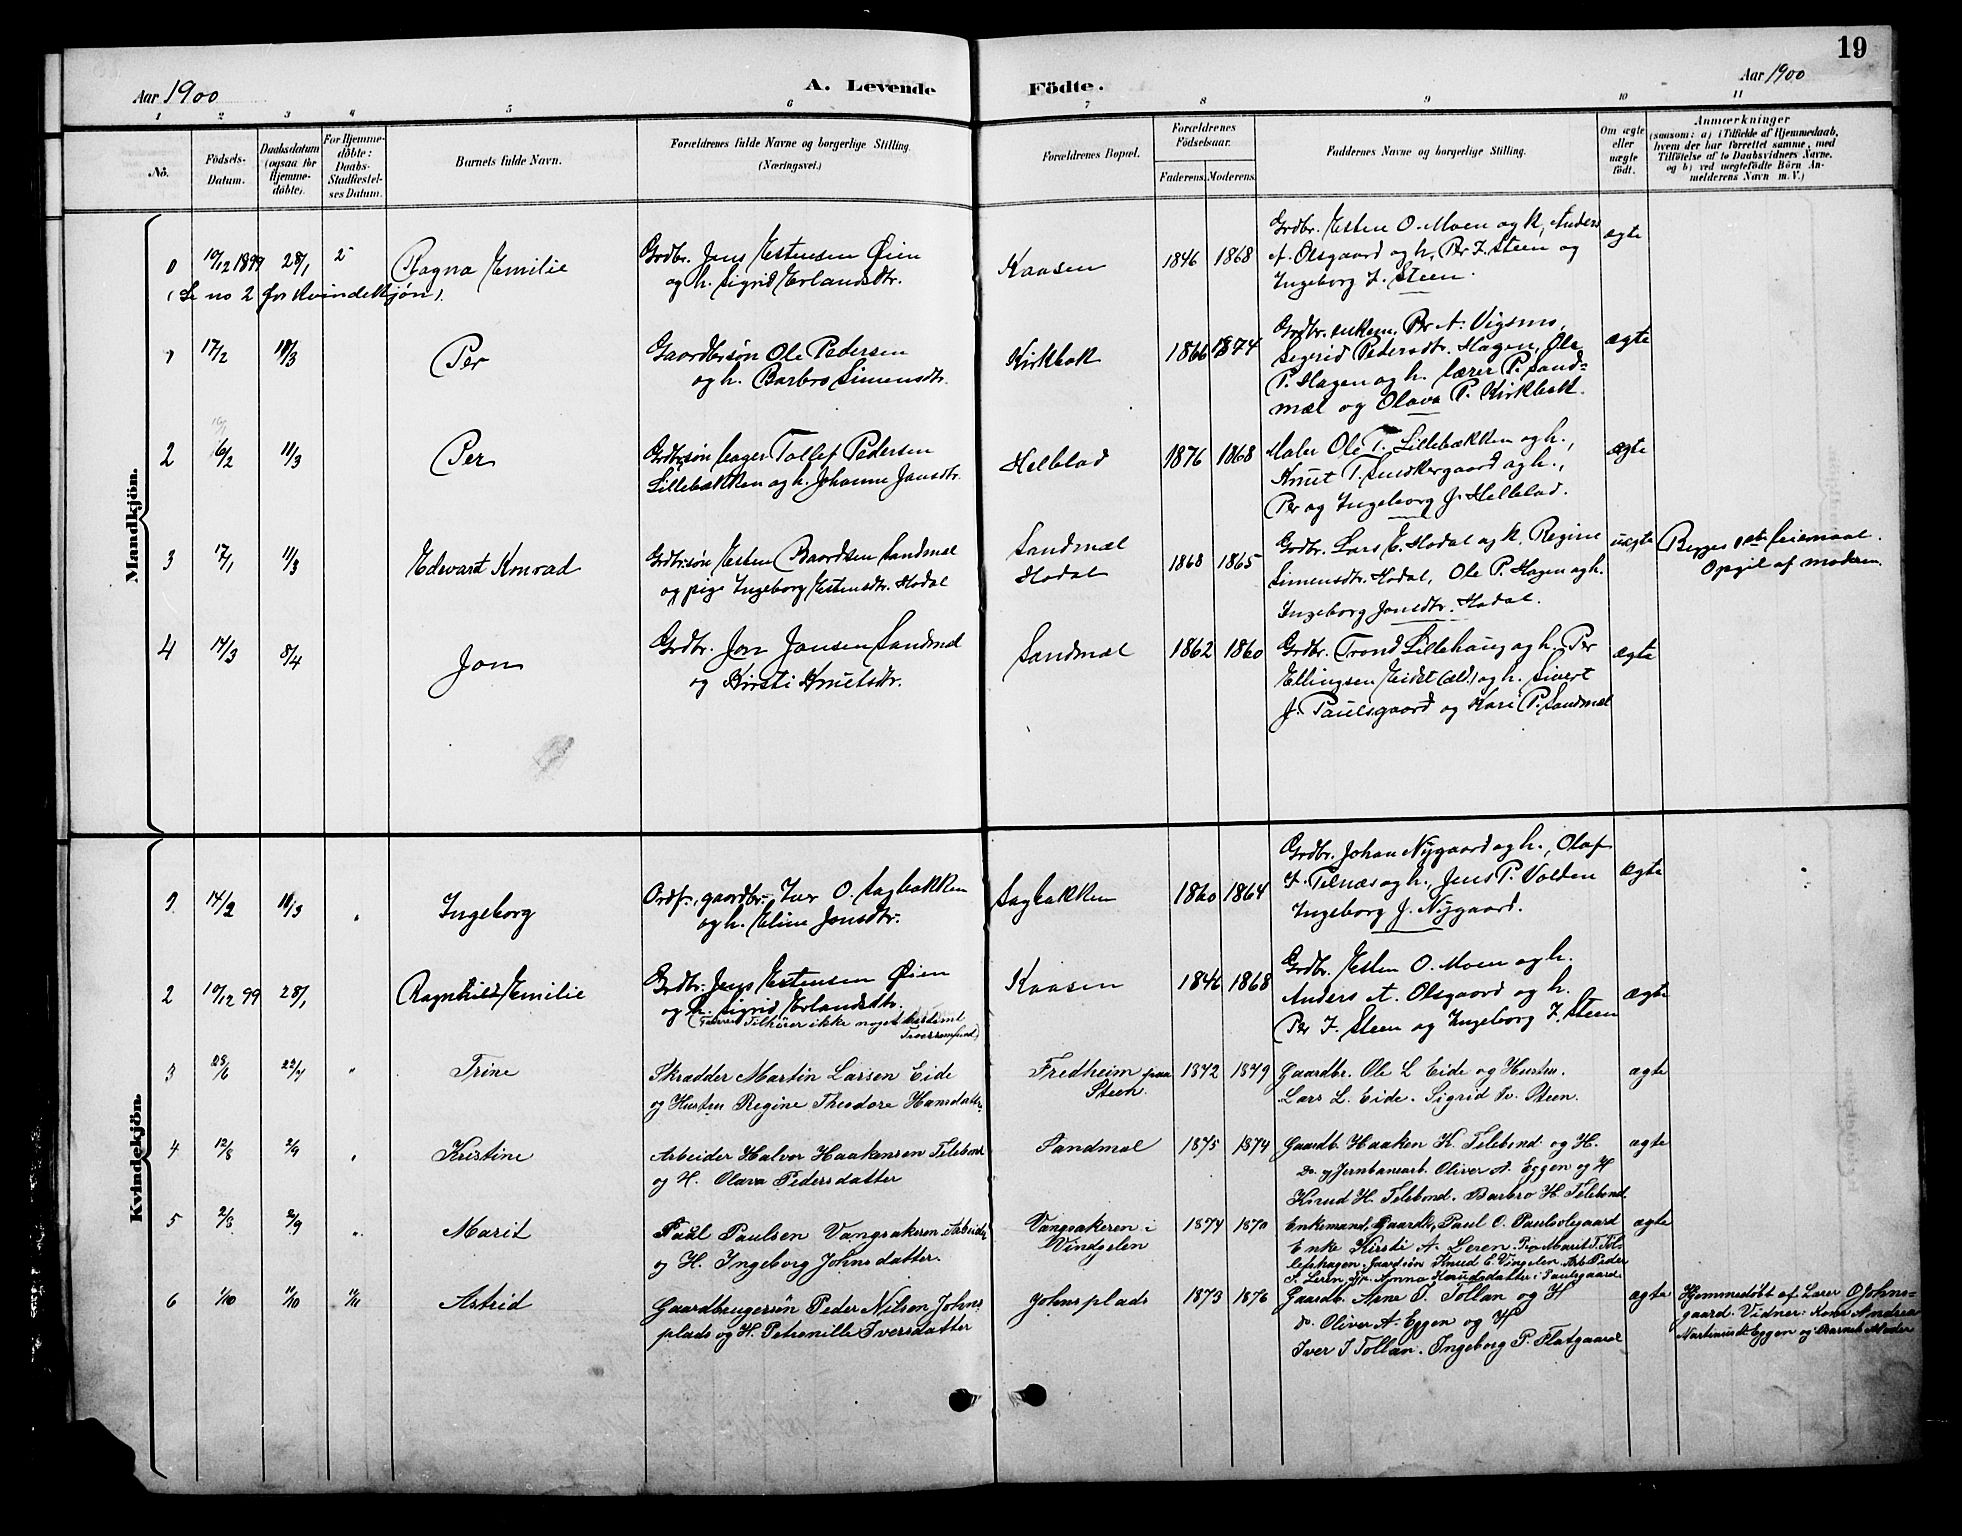 19
Aar 1900
A. Levende Födte.
Aar 1900
1 2 3 4 5 6 7 8 9 10 11
No.
Födsels-
Datum.
Daabsdatum
(ogsaa for
Hjemme-
döbte).
For Hjemme-
döbte:
Daabs-
Stadfæstel-
ses Datum.
Barnets fulde Navn.
Forældrenes fulde Navne og borgerlige Stilling
(Næringsvei.)
Forældrenes Bopæl.
Forældrenes
Födselsaar.
Faderens. Moderens.
Faddernes Navne og borgerlige Stilling.
Om ægte
eller
uægte
födt.
Anmærkninger
(saasom: a) i Tilfælde af Hjemmedaab,
hvem der har forrettet samme, med
Tilföielse af to Daabsvidners Navne.
og b) ved uægtefödte Börn An-
melderens Navn m. V.)
Mandkjön.
10/12 1899 28/1
Ragna Emilie
(Se no 2 for Kvindekjøn).
Grdbr. Jens Estensen Øien
og h. Sigrid Erlandsdtr.
Kaasen
1846 1868
Grdbr. Esten O. Moen og h, Anders
A. Olsgaard og h, Per I. Steen og
Ingeborg I. Steen.
ægte
1 17/2 11/3
Per
Gaardbrsøn Ole Pedersen
og h. Barbro Simensdtr.
Kirkbak
1866 1874
Grdbr. enkem. Per A. Vigsmo,
Sigrid Pedersdtr. Hagen, Ole
P. Hagen og h. lærer P. Sand=
mæl og Olava P. Kirkbak.
ægte
2 16/2 11/3
Per
Grdbrsøn Tollef Pedersen
Lillebækken og h. Johanne Jonsdtr.
Helblad
1876 1868
Maler Ole T. Lillebækken og h.,
Knut T. og h.,
Per og Ingeborg J. Helblad.
ægte
3 17/1 11/3
Edevart Konrad
Grdbrsøn Esten Baardsen Sandmæl
og pige Ingeborg Estensdtr. Hodal
Sandmæl
Hodal
1868 1865
Grdbr. Lars E. Hodal og k. Regine
Simensdtr. Hodal, Ole P. Hagen og h.
Ingeborg Jonsdtr. Hodal.
uægte
Begges 1ste leiermaal.
Opgit af moderen.
4 14/3 8/4
Jon
Grdbr. Jon Jonsen Sandmæl
og Kirsti Knutsdtr.
Sandmæl
1862 1860
Grdbr. Trond Lillehaug og h. Per
Ellingsen Eidet (æld.) og h. Sivert
J. Paulsgaard og Kari P. Sandmæl
ægte
Kvindekjön.
1 14/2 11/3
Ingeborg
Ordf., gaardbr. Iver O. Sagbakken
og h. Eline Jonsdtr.
Sagbakken
1860 1864
Grdbr. Johan Nygaard og h., Olaf
I. Telnæs og h., Jens P. Volden
Ingeborg J. Nygaard.
ægte
2 10/12 99 28/1
Ragnhild Emilie
Grdbr. Jens Estensen Øien
og h. Sigrid Erlandsdtr.
(Faderen tilhører ikke noget bestemt
Troessamfund)
Kaasen
1846 1868
Grdbr. Esten O. Moen og h.
Anders A. Olsgaard og h.
Per I. Steen og Ingeborg I. Steen
ægte
3 28/6 22/7 "
Trine
Skrædder Martin Larsen Eide
og Hustru Regine Theodore Hansdatter
Fredheim paa
Steen.
1842 1849
Gaardbr. Ole L Eide og Hustru.
Lars L. Eide. Sigrid Steen.
ægte
4 12/8 2/9
Kristine
Arbeider Halvor Haakensen Telebond
og H. Olava Pedersdatter
Sandmæl
1875 1874
Gaardb. Haaken K. Telebond og H.
do. og Jernbanearb. Oliver A. Eggen og H
Knud H. Telebond. Barbro H Telebond.
ægte
5 2/8 2/9 "
Marit
Paul Paulsen Vangsakeren, Arbeider
og H. Ingeborg Johnsdatter.
Vangsakeren i
Windgelen
1874 1870
Enkemand, Gaardb., Paul O. Paulsgaard
Enke Kirsti A. Leren. Marit T. Tol-
lefshagen. Knud E. Vingelen. Arb. Peder
Leren. Anna Knudsdatter i Paulsgaard
ægte
6 1/10 11/10
Astrid
Gaardbrugersön Peder Nilsen Johns
plads og H. Petronille Iversdatter
Johnsplads
1873 1876
Gaardb. Arne Tollan og H
do. Oliver A. Eggen og H
Iver I Tollan. Ingeborg P. Flatgaard
ægte
Hjemmedøbt af Lærer O Johns-
gaard. Vidner: Kone Andrea
Eggen og Barnets Moder